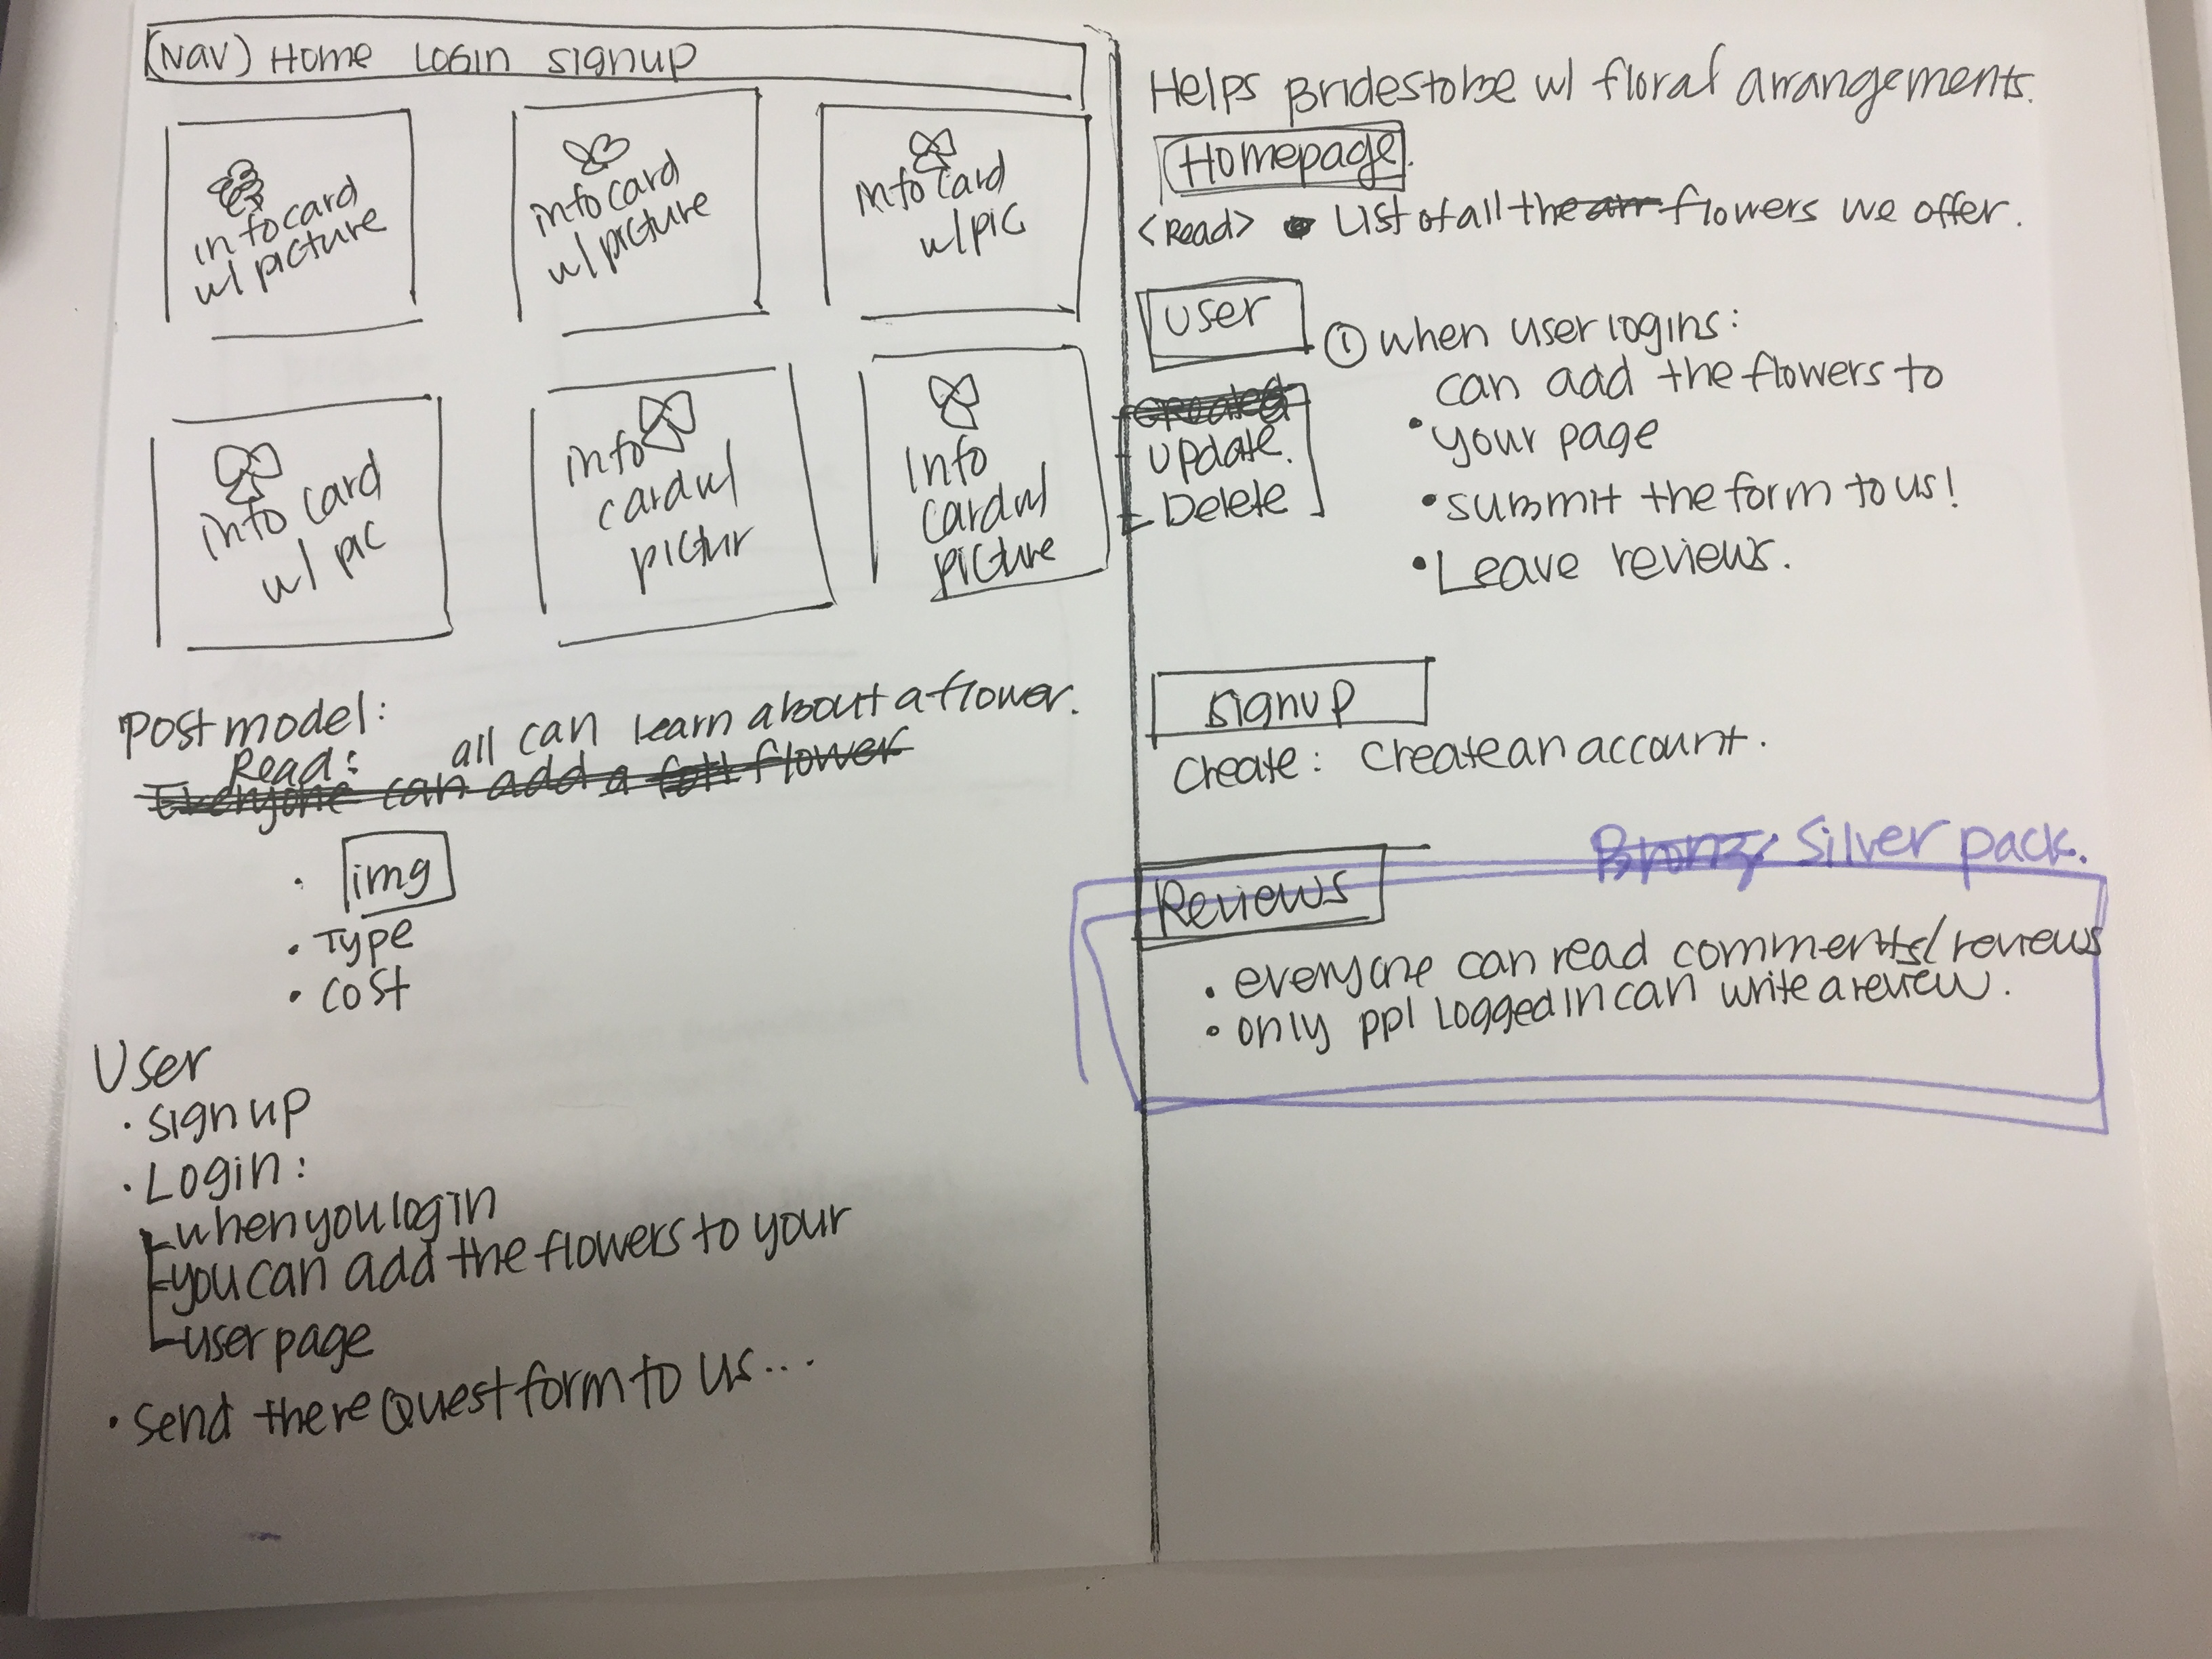 (NAV) Home Login Signup
info card
w/ picture
info card
w/ picture
info card
w/ pic
info card
w/ pic
info
card w/
pictur
Info
card w/
picture
Post model:
Read: all can learn about a flower.
Everyone can add a flower
• img
• Type
• cost
User
• sign up
• Login:
- when you login
- you can add the flowers to your
- user page
• Send the reQuest form to us...
Helps Brides to be w/ floral arrangements.
Homepage.
<Read> • List of all the arr flowers we offer.
user
① when user logins:
can add the flowers to
• your page
• submit the form to us!
• Leave reviews.
Created
- Update.
- Delete
signup
Create: Create an account.
Bronze Silver pack.
Reviews
• everyone can read comments/reviews
• only ppl Logged in can write a review.